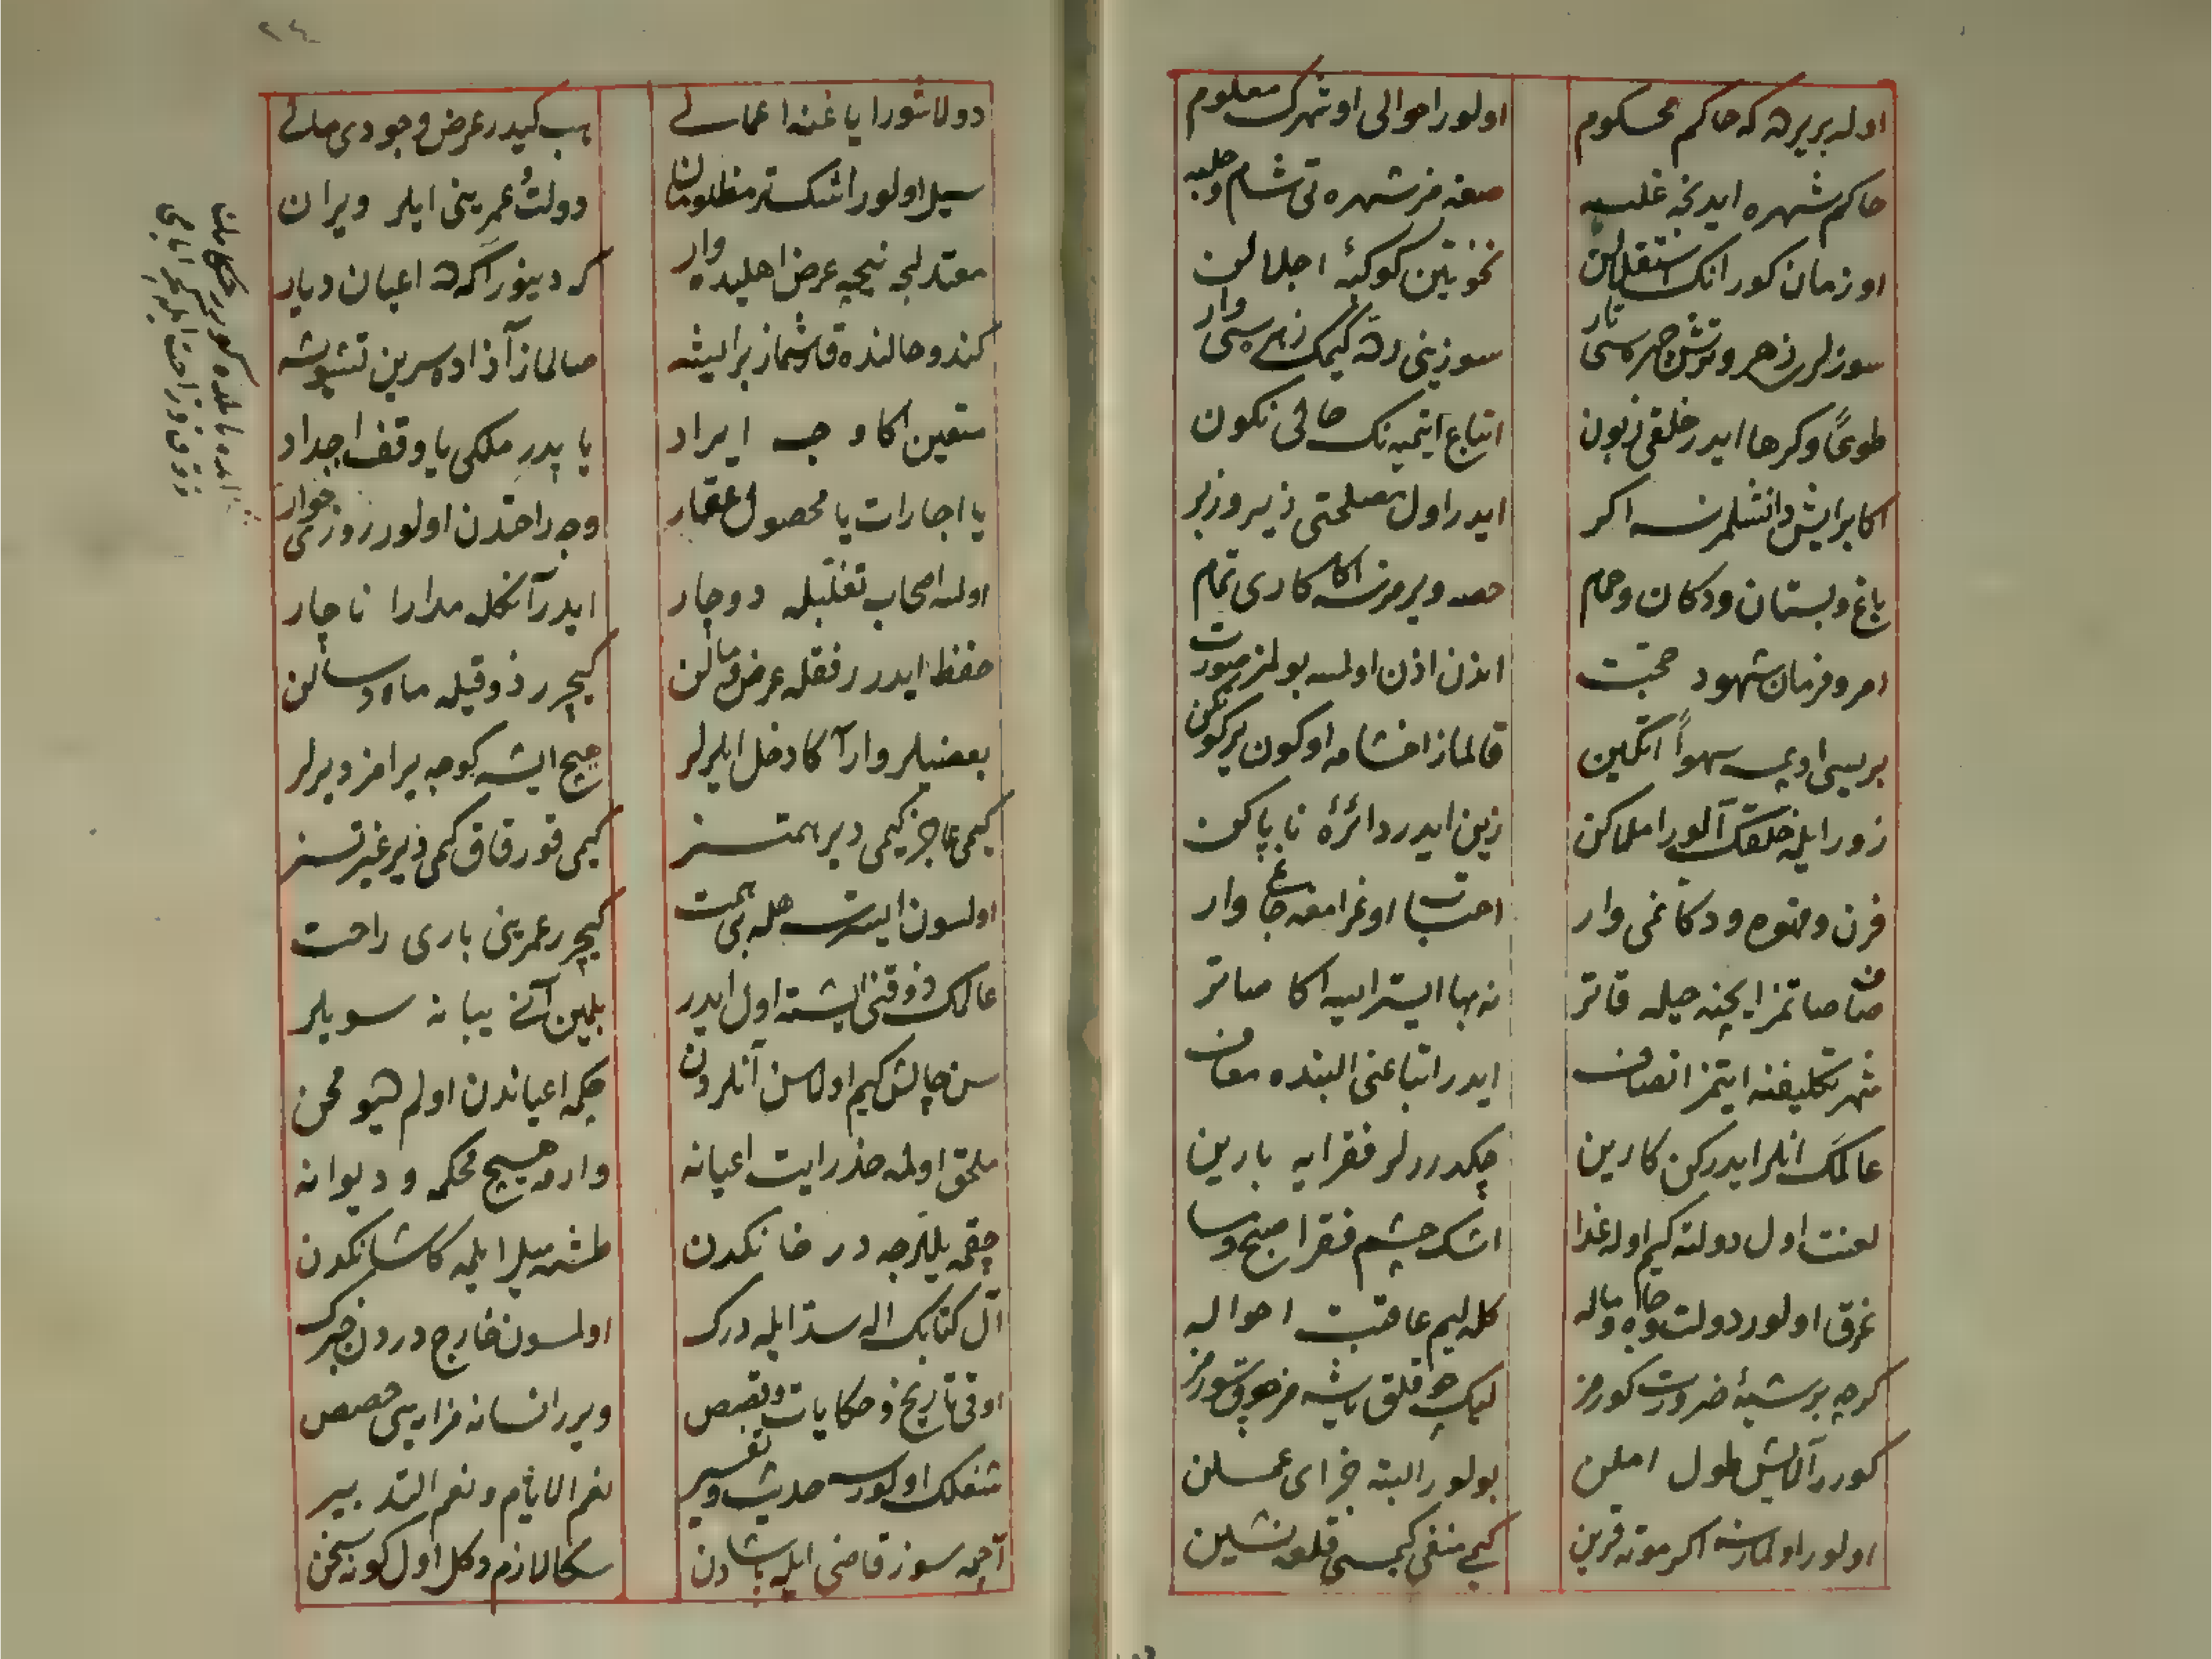 اوله بریرده که حاکم محکوم
اولور احوالی اوشهرک معلوم
حاکم شهره ایدنجه غلبه
صغمز شهره تی شام و حلبه
او زمان کور انک استقلالن
نخوتین کوکبهٔ اجلالن
سوزلری زهر و ترش چهره سی تار
سوزینی رده کیمک زهره سی وار
طوعًا وکرها ایدر خلقی زبون
اتباع ایتمیه نک حالی نکون
اکا برایش دانشلمزسه اکر
ایدر اول مصلحتی زیر وزبر
باغ وبستان ودکان وحمام
حصه ویرمزسه اکا کاری تمام
امر وفرمان شهود حجت
اندن اذن اولمسه بولمز صورت
بریسی ادیسه سهواً اتکین
قالماز اخشامه اوکون یرکوکن
زور ایله خلقک آلور املاکن
زین ایدر دائرهٔ ناپاکن
فرن وقهوه ودکانمی وار
احتسابا اوغرامغه جاغ وار
صاف صاتمز ایچنه حیله قاتر
نه بها ایستر ایسه اکا صاتر
شهر تکلیفنه ایتمز انصاف
ایدر اتباعنی البنده معاف
عالمک انلر ایدرکن کارین
چکدررلر فقرایه بارین
لعنت اول دولته کیم اوله غدا
اشک چشم فقرا صبح ومسا
غرق اولور دولت وجاه وماله
کله لیم عاقبت احواله
کرچه برشیئه ضرورت کورمز
لیک قلق باشه مز هو یتورمز
کورر آلایش طول املن
بولور البته جزای عملن
اولور اولمازسه اکر موته قرین
کیمی منفی کیمسی قلعه نشین
دولاشور ایاغنه اعمالی
هب کیدر عرض وجودی مالی
سیل اولور اشک تر مظلومان
دولت عمرینی ایلر ویران
معتدلجه نیجه عرض اهلیده وار
که دینور اکه ده اعیان دیار
کندو حالنده قارشماز بر ایشه
صالماز آزاده سرین تشویشه
متعین اکا وجه ایراد
یا پدر ملکی یا وقف اجداد
یا اجارات یا محصول عقار
وجه راحتدن اولور روزی خوار
اولسه اصحاب تغلبله دوچار
ایدر آنکله مدارا ناچار
حفظ ایدر رفقله عرض ومالن
کیچرر ذوقیله ماه وسالن
بعضیلر وار آکا دخل ایلرلر
هیچ ایشه کوجه یرامز دیرلر
کیمی عاجز کیمی دیر همتسز
کیمی قورقاق کیمی دیر غیرتسز
اولسون ایسترسه هله بی همت
کیچرر عمرینی باری راحت
عالمک ذوقنی ایشته اول ایدر
بلمین آنی یبانه سویلر
سن چالش کیم اولاسن آنلردن
جکمه اعیاندن اولم دیو محن
ملحق اولمه حذر ایت اعیانه
وارمه هیچ محکمه و دیوانه
چقمه یللرجه در خانکدن
طشره میل ایلمه کاشانکدن
ال کتابک اله سد ایله درک
اولمسون خارج دردن خبرک
اوقی تاریخ و حکایات و قصص
ویرر انسانه مزایسی حصص
شغلک اولورسه حدیث و تفسیر
نعم الایام و نعم التدبیر
آچمه سوز قاضی ایله پاشادن
سکا لازم دکل اول کونه سخن